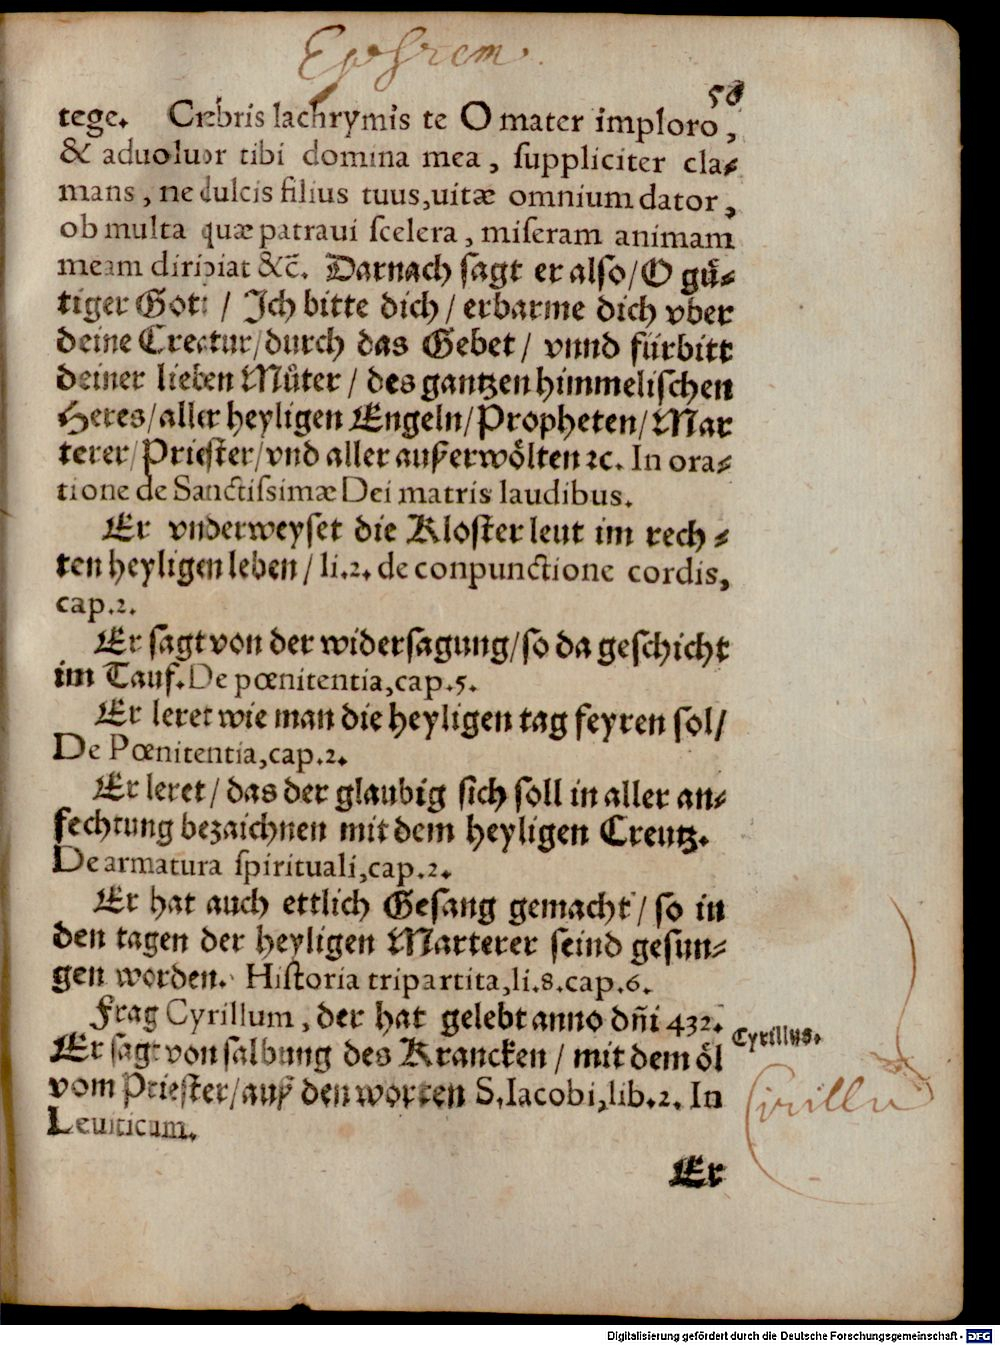 Ephrem.
58
tege. Crebris lachrymis te O mater imploro,
& aduoluor tibi domina mea, suppliciter cla-
mans, ne dulcis filius tuus, uitæ omnium dator,
ob multa quæ patraui scelera, miseram animam
meam diripiat &c̄. Darnach sagt er also/ O gů-
tiger Gott / Jch bitte dich / erbarme dich vber
deine Creatur/ durch das Gebet / vnnd fürbitt
deiner lieben Můter / des gantzen himmelischen
Heres/ aller heyligen Engeln/ Propheten/ Mar
terer/ Priester/ vnd aller außerwölten ꝛc. In ora-
tione de Sanctissimæ Dei matris laudibus.
Er vnderweyset die Kloster leut im rech-
ten heyligen leben / li.2. de conpunctione cordis,
cap.2.
Er sagt von der widersagung/ so da geschicht
im Tauf. De pœnitentia, cap.5.
Er leret wie man die heyligen tag feyren sol/
De Pœnitentia, cap.2.
Er leret / das der glaubig sich soll in aller an-
fechtung bezaichnen mit dem heyligen Creutz.
De armatura spirituali, cap.2.
Er hat auch ettlich Gesang gemacht / so in
den tagen der heyligen Marterer seind gesun-
gen worden. Historia tripartita, li.8. cap.6.
Frag Cyrillum, der hat gelebt anno dñi 432.
Cyrillus.
Er sagt von salbung des Krancken / mit dem öl
vom Priester/ auß den worten S. Iacobi, lib.2. In
Cirillu
Leuiticum.
Er
Digitalisierung gefördert durch die Deutsche Forschungsgemeinschaft - DFG